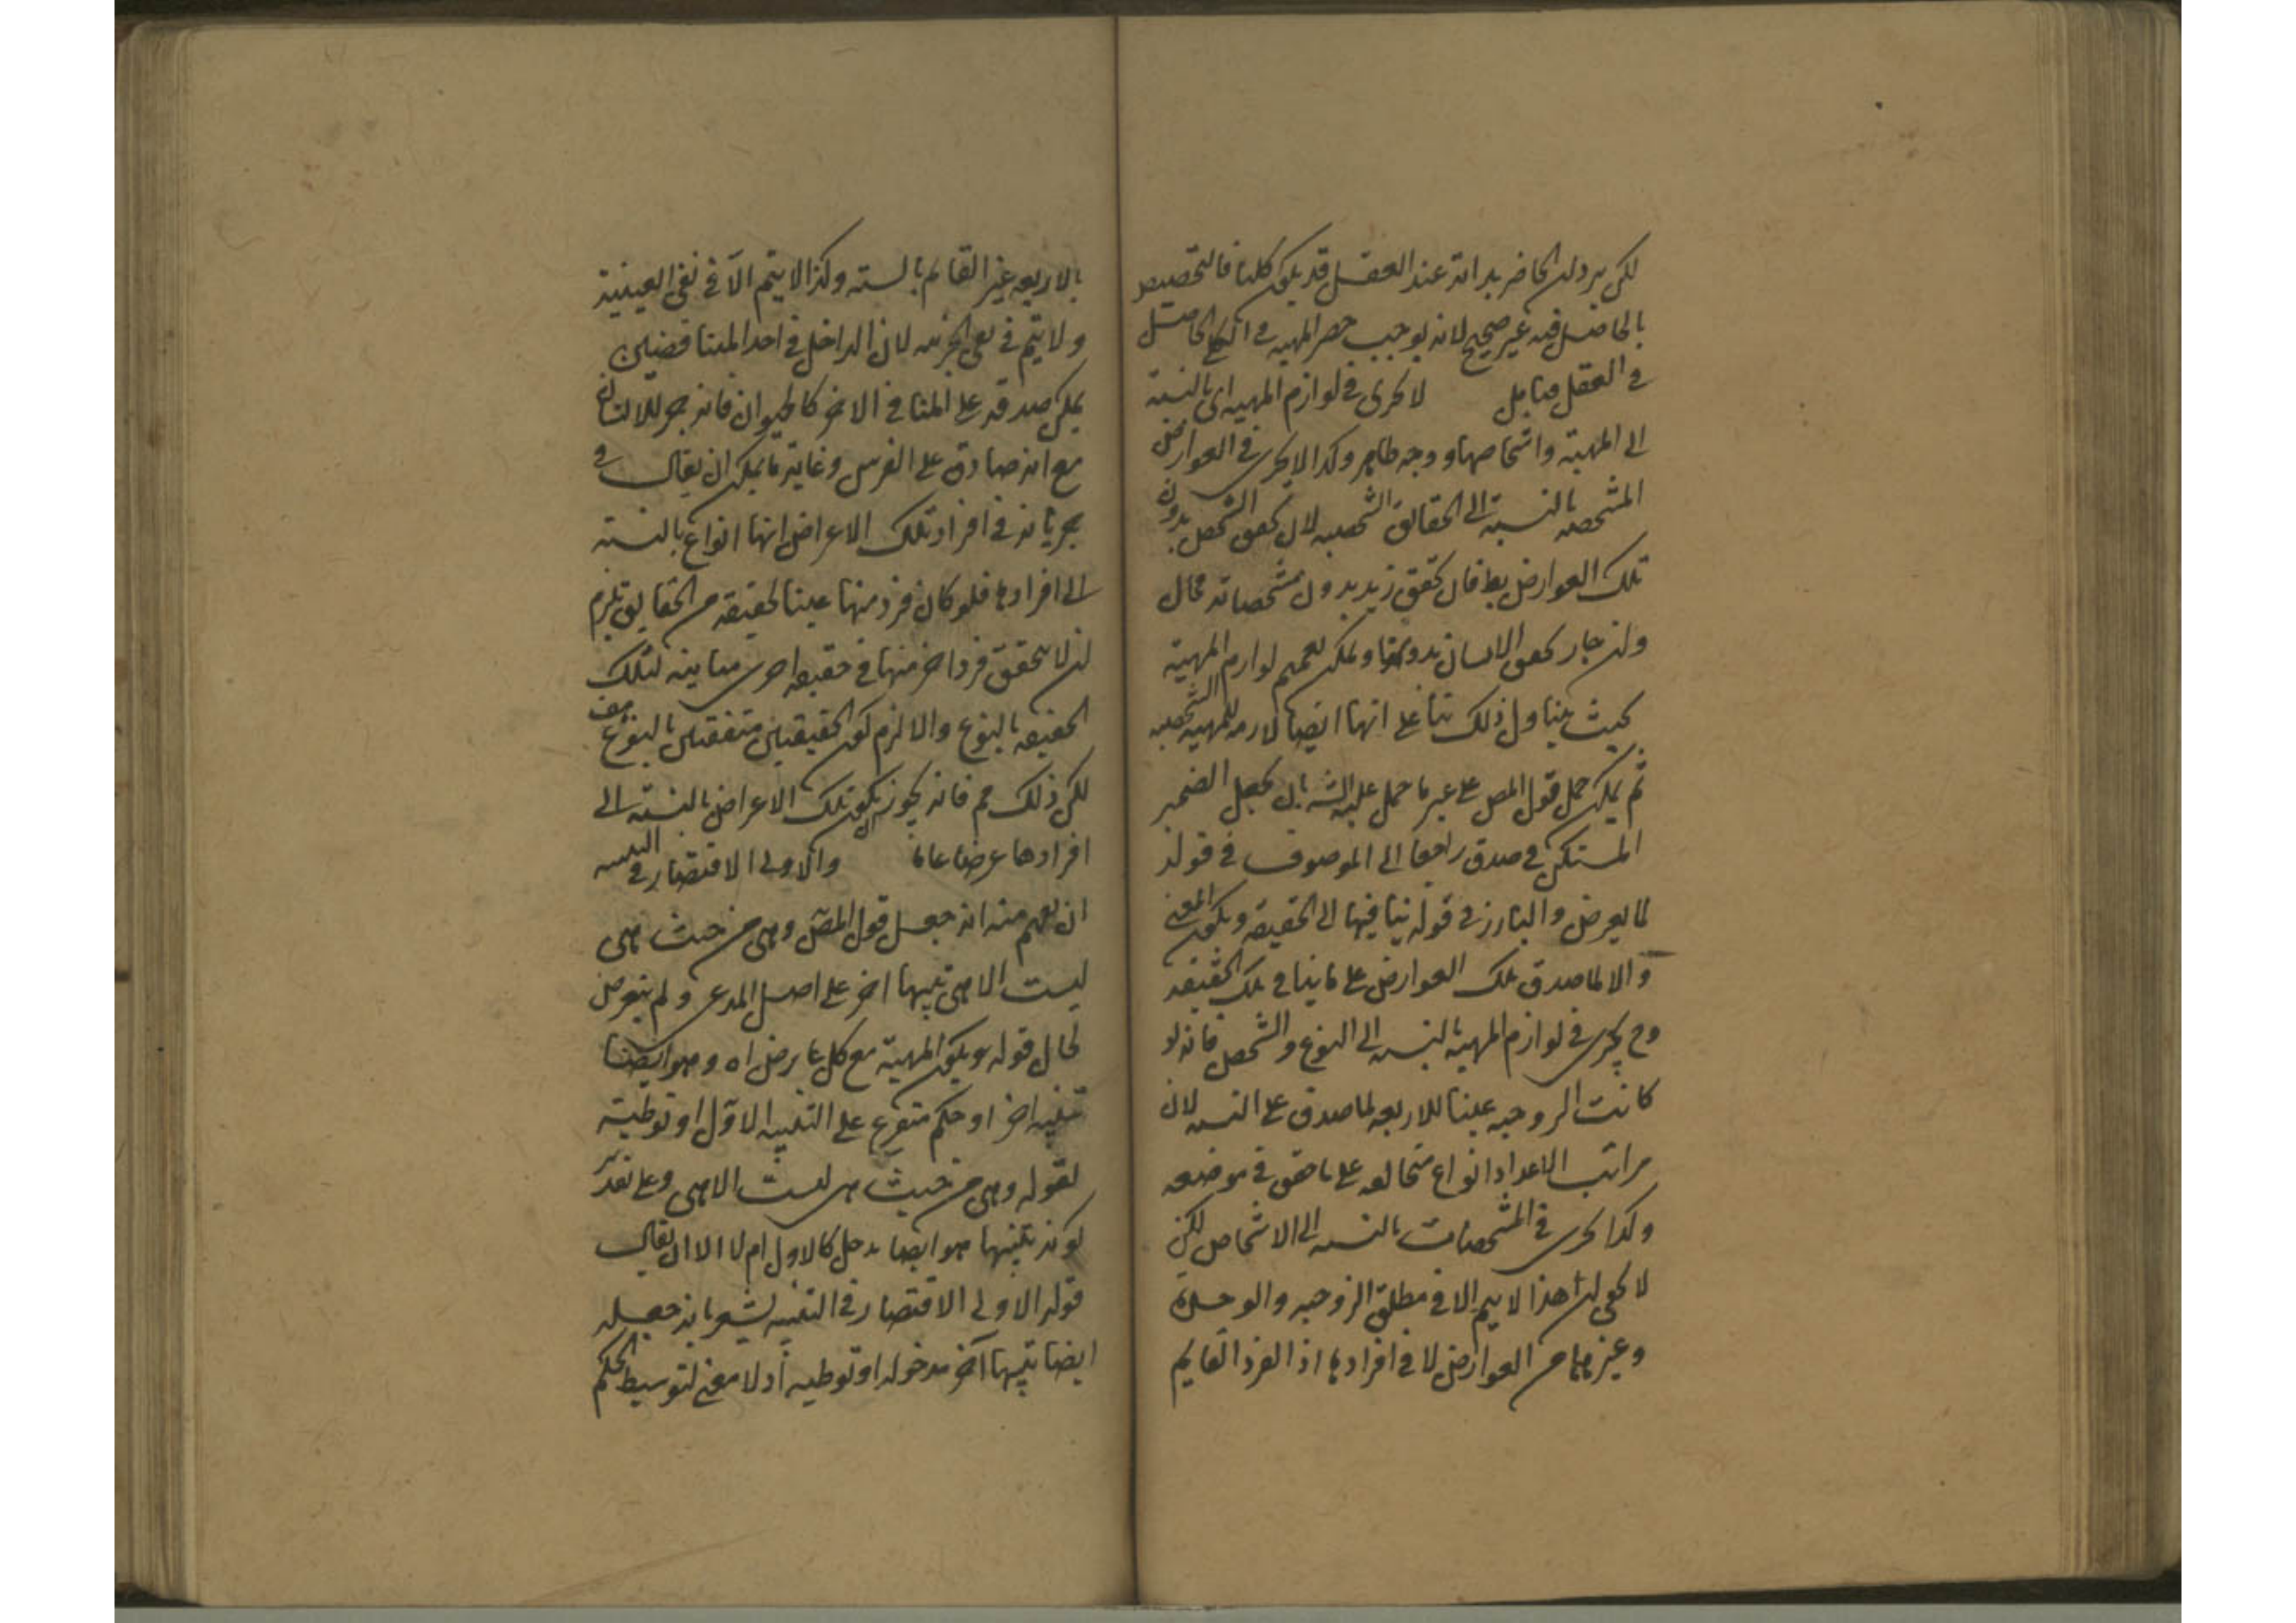 لكن يرد ان الحاضر بذاته عند العقل قد يكون كليا فالتخصيص
بالحاصل فيه غير صحيح لانه يوجب حصر المهية في الكلي الحاصل
في العقل فتأمل لا يجرى في لوازم المهية اى بالنسبة
الى المهية واشخاصها ووجه ظاهر وكذا لا يجرى في العوارض
المشخصه بالنسبة الى الحقائق الشخصيه لان تحقق الشخص بدون
تلك العوارض بط فان تحقق زيد بدون مشخصاته محال
وان جاز تحقق الانسان بدونها ويمكن تعميم لوازم المهية
بحيث يتناول ذلك بنا على انها ايضا لازمه للمهيه الشخصيه
ثم يمكن حمل قول المص على غير ما حمل عليه الش بان يجعل الضمير
المستكن في صدق راجعا الى الموصوف في قوله
لما يعرض والبارز في قوله ينافيها الى الحقيقة ويكون المعنى
والا لما صدق تلك العوارض على ما ينافي تلك الحقيقه
وح يجرى في لوازم المهية بالنسبه الى النوع والشخص فانه لو
كانت الزوجيه عينا للاربعه لما صدق على الستة لان
مراتب الاعداد انواع متخالفه على ما حقق في موضعه
وكذا يجرى في المشخصات بالنسبه الى الاشخاص لكن
لا يخفى ان هذا لا يتم الا في مطلق الزوجيه والوحدة
وغيرهما من العوارض لا في افرادها اذ الفرد القايم
بالاربعه غير القائم بالسته وكذا لا يتم الا في نفي العينية
ولا يتم في نفي الجزئيه لان الداخل في احد المتنافضين
يمكن صدقه على المنافي الاخر كالحيوان فانه جزء للانسان
مع انه صادق على الفرس وغاية ما يمكن ان يقال في
جريانه في افراد تلك الاعراض انها انواع بالنسبة
الى افرادها فلو كان فرد منها عينا لحقيقة من الحقايق يلزم
ان لا يتحقق فرد اخر منها في حقيقه اخرى مباينه لتلك
الحقيقه بالنوع والا لزم كون الحقيقتين متفقتين بالنوع هف
لكن ذلك مم فانه يجوز ان يكون تلك الاعراض بالنسبة الى
افرادها عرضا عاما والاولى الاقتصار في التنبيه
ان يفهم منه انه جعل قول المص وهي من حيث هي
ليست الا هي تنبيها اخر على اصل المدعى ولم يتعرض
لحال قوله ويكون المهية مع كل عارض اه وهو ايضا
تنبيه اخر او حكم متفرع على التنبيه الاول او توطئة
لقوله وهي من حيث هي ليست الا هي وعلى تقدير
كونه تنبيها هو ايضا مدخل كالاول ام لا الا ان يقال
قوله الاولى الاقتصار في التنبيه يشعر بانه جعله
ايضا تنبيها آخر مدخوله او توطيه اذ لا معنى لتوسيط الحكم